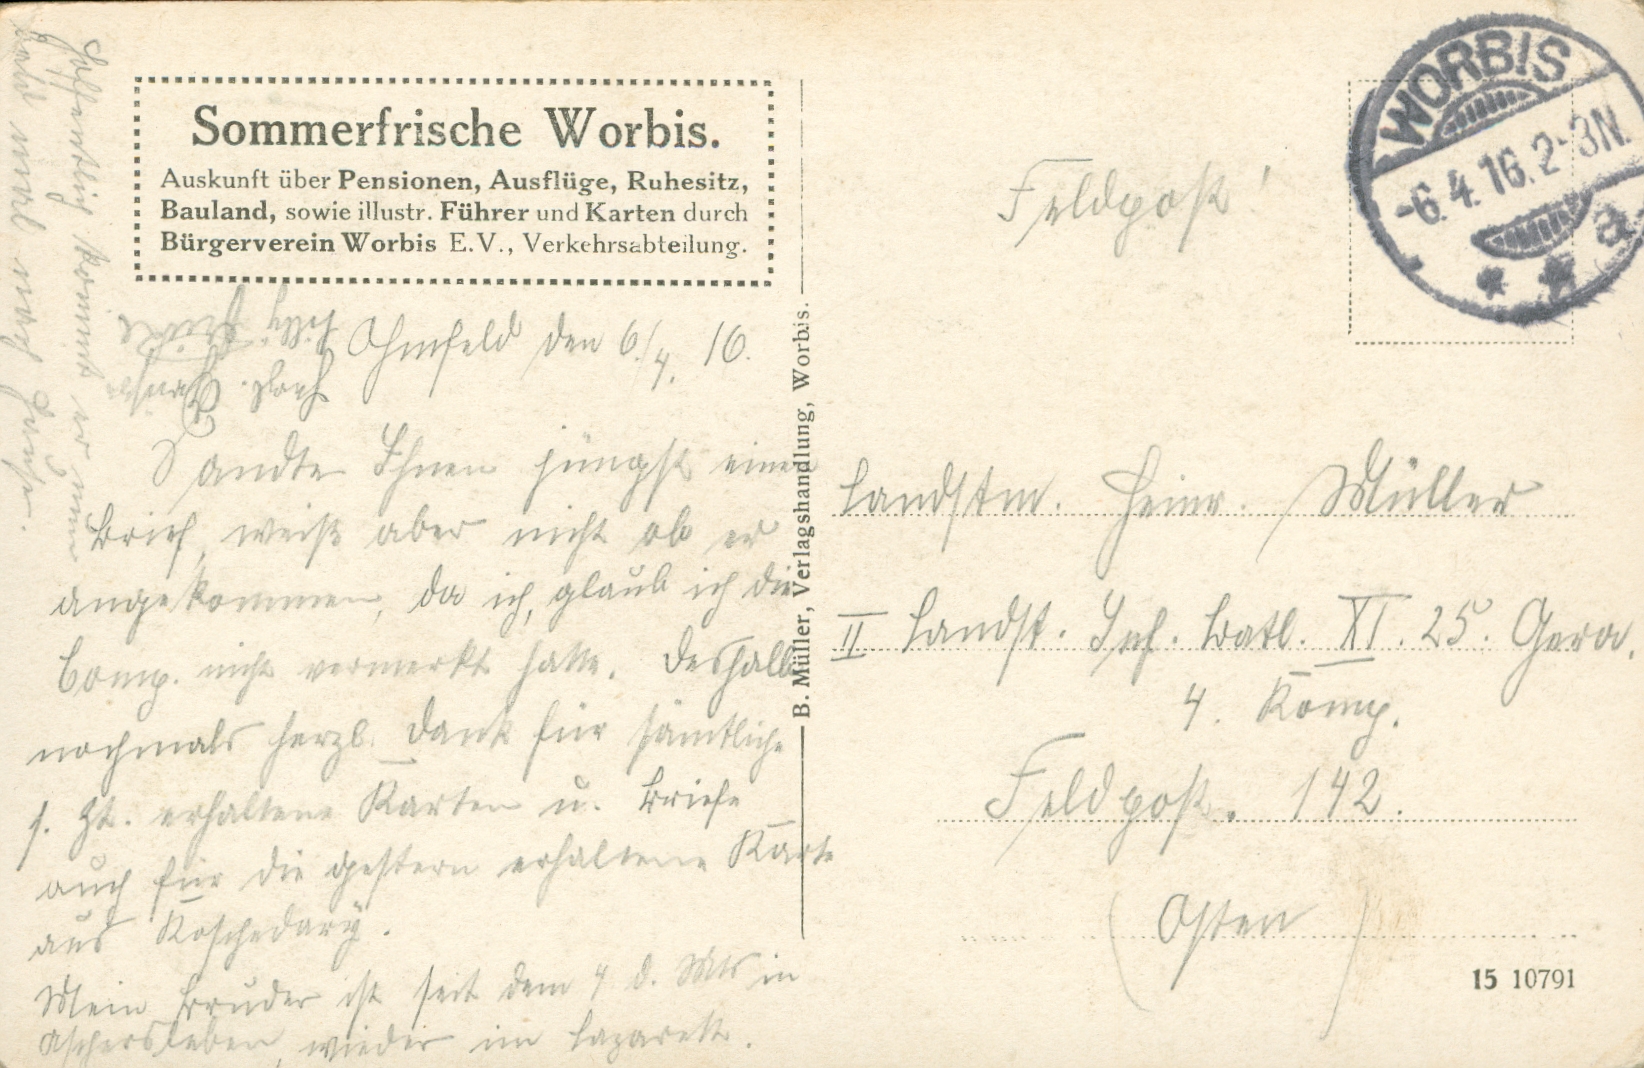 Sommerfrische Worbis.
Auskunft über Pensionen, Ausflüge, Ruhesitz,
Bauland, sowie illustr. Führer und Karten durch
Bürgerverein Worbis E.V., Verkehrsabteilung.
Ohmfeld den 6./4. 16.
Sandte Ihnen jüngst einen
Brief, weiß aber nicht ob er
angekommen, da ich, glaub ich die
Comp. nicht vermerkt hatte. Deshalb
nochmals herzl. Dank für sämtliche
s. Zt. erhaltene Karten u. Briefe
auch für die gestern erhaltene Karte
aus Koschedary.
Mein Bruder ist seit dem 4 d. Mts in
Aschersleben, wieder im Lazarett.
Hoffentlich kommt er nun
bald mal nach Hause.
Herzl.
B. Müller, Verlagshandlung, Worbis.
WORBIS
-6.4.16.2-3N.
a
Feldpost!
Landstm. Heinr. Müller
II Landst. Inf. Batl. XI. 25. Gera.
4. Komp.
Feldpost. 142.
(Osten)
15 10791